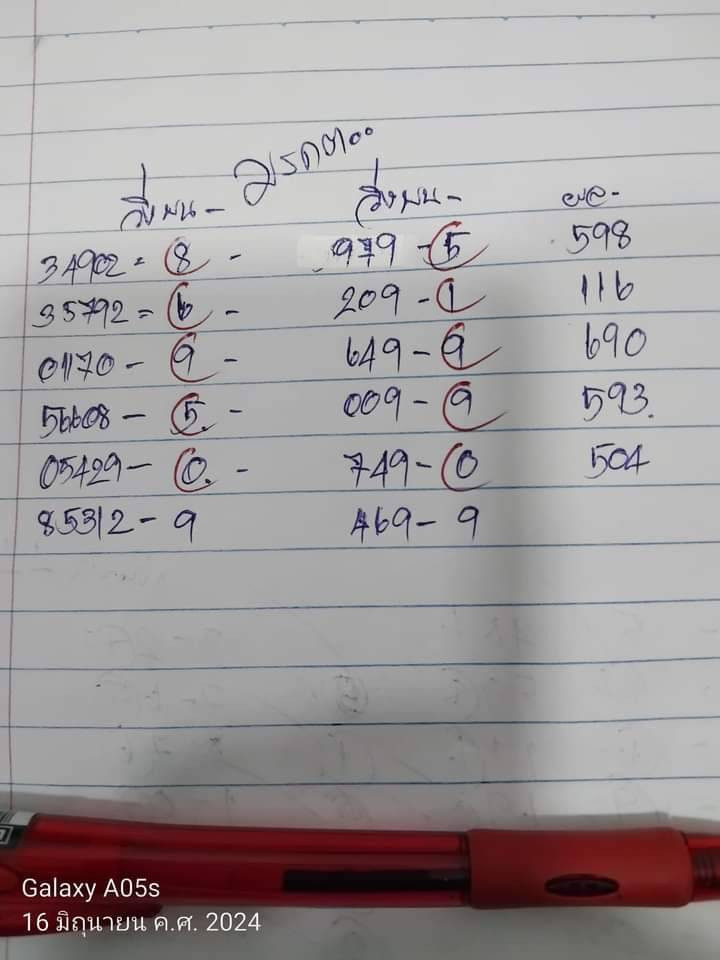 มรดต๐๐
วิ่งบน - วิ่งบน - ผล -
34902 = 8 - 979 - 5 598
35792 = 6 - 209 - 1 116
01170 - 9 - 649 - 9 690
56608 - 5. - 009 - 9 593.
05429 - 0. - 749 - 0 504
85312 - 9 469 - 9
Galaxy A05s
16 มิถุนายน ค.ศ. 2024